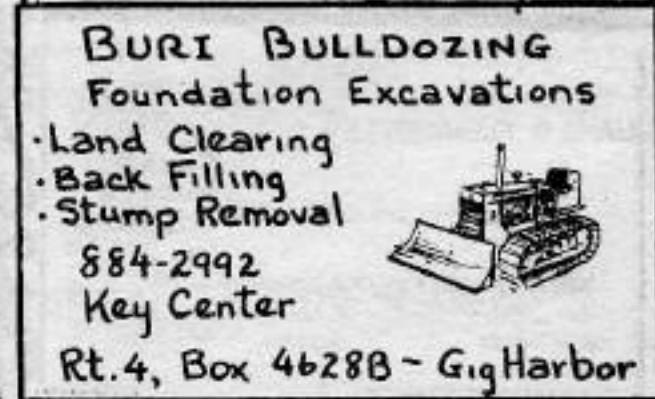 BURI BULLDOZING
Foundation Excavations
·Land Clearing
·Back Filling
·Stump Removal
884-2992
Key Center
Rt.4, Box 4628B ~ Gig Harbor